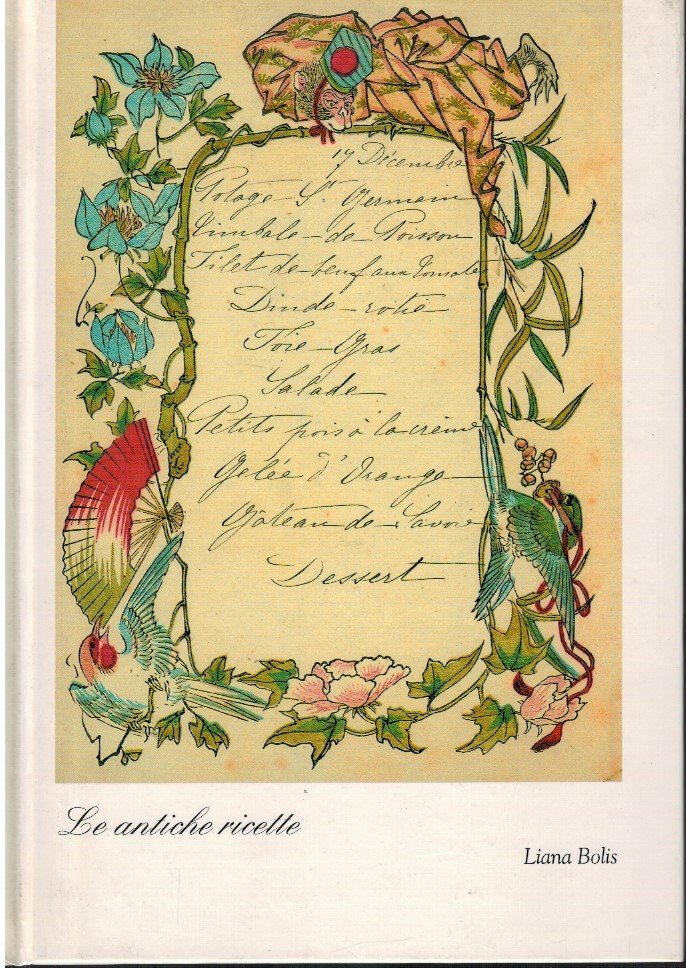 17 Décembre
Potage St. Germain
Timbale de Poisson
Filet de beuf aux tomates
Dinde rotie
Foie Gras
Salade
Petits pois à la crème
Gelée d'Orange
Gâteau de Savoie
Dessert
Le antiche ricette
Liana Bolis